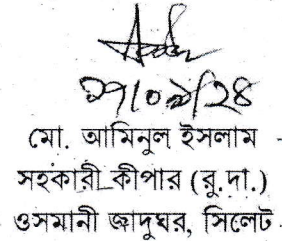 ২৭/০৯/২৪
মো. আমিনুল ইসলাম
সহকারী কীপার (রু.দা.)
ওসমানী জাদুঘর, সিলেট